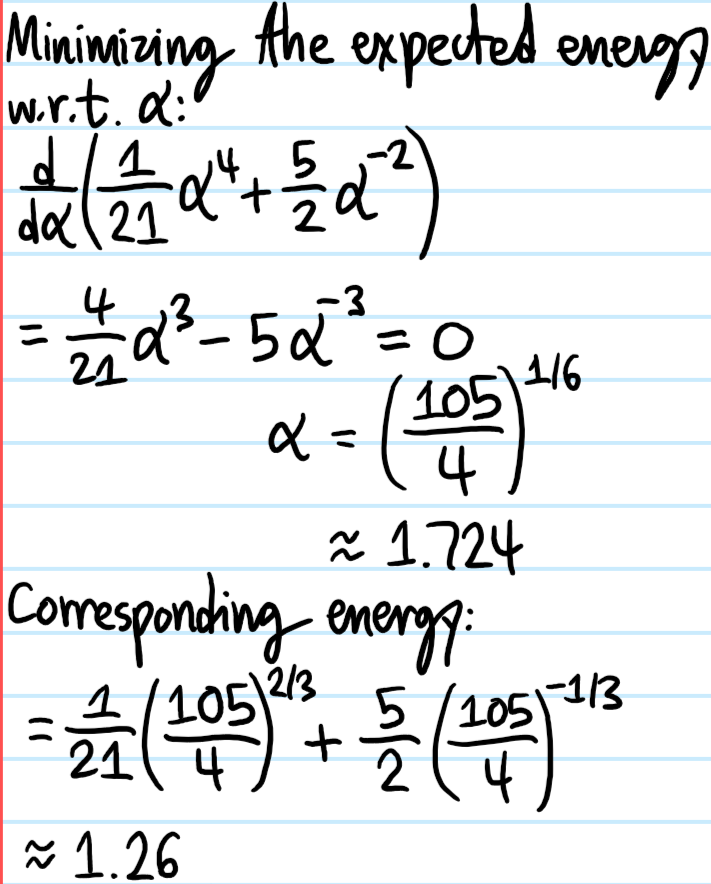 Minimizing the expected energy
w.r.t. α:
d/dα(1/21 α⁴ + 5/2 α⁻²)
= 4/21 α³ - 5α⁻³ = 0
α = (105/4)^1/6
≈ 1.724
Corresponding energy:
= 1/21 (105/4)^2/3 + 5/2 (105/4)^-1/3
≈ 1.26